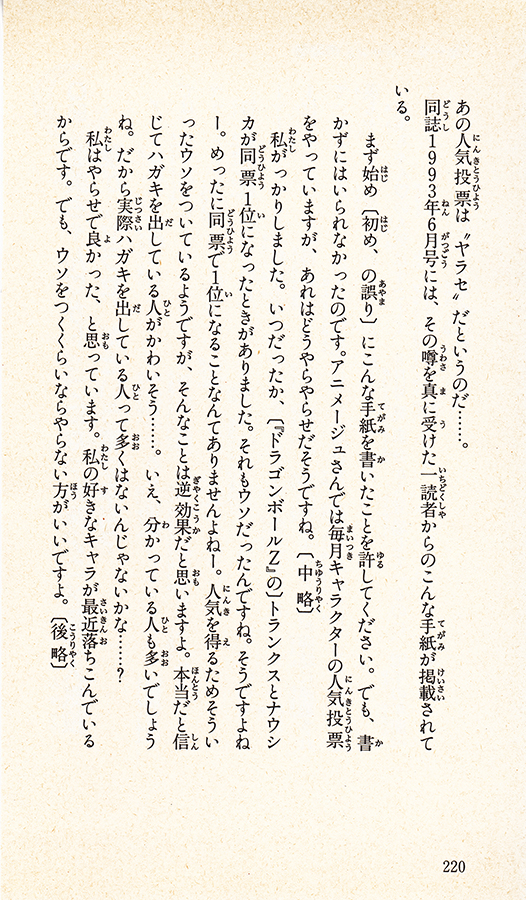 あの人気投票は〝ヤラセ〟だというのだ……。
同誌1993年6月号には、その噂を真に受けた一読者からのこんな手紙が掲載されて
いる。
まず始め〔初め、の誤り〕にこんな手紙を書いたことを許してください。でも、書
かずにはいられなかったのです。アニメージュさんでは毎月キャラクターの人気投票
をやっていますが、あれはどうやらやらせだそうですね。〔中略〕
私がっかりしました。いつだったか、〔『ドラゴンボールZ』の〕トランクスとナウシ
カが同票1位になったときがありました。それもウソだったんですね。そうですよね
ー。めったに同票で1位になることなんてありませんよねー。人気を得るためそうい
ったウソをついているようですが、そんなことは逆効果だと思いますよ。本当だと信
じてハガキを出している人がかわいそう……。いえ、分かっている人も多いでしょう
ね。だから実際ハガキを出している人って多くはないんじゃないかな……?
私はやらせで良かった、と思っています。私の好きなキャラが最近落ちこんでいる
からです。でも、ウソをつくくらいならやらない方がいいですよ。〔後略〕
220